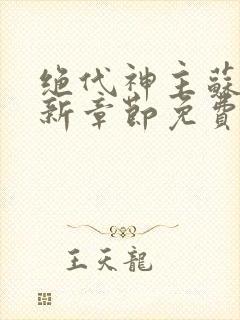 绝代神主蘇
新章節免費
王天龍